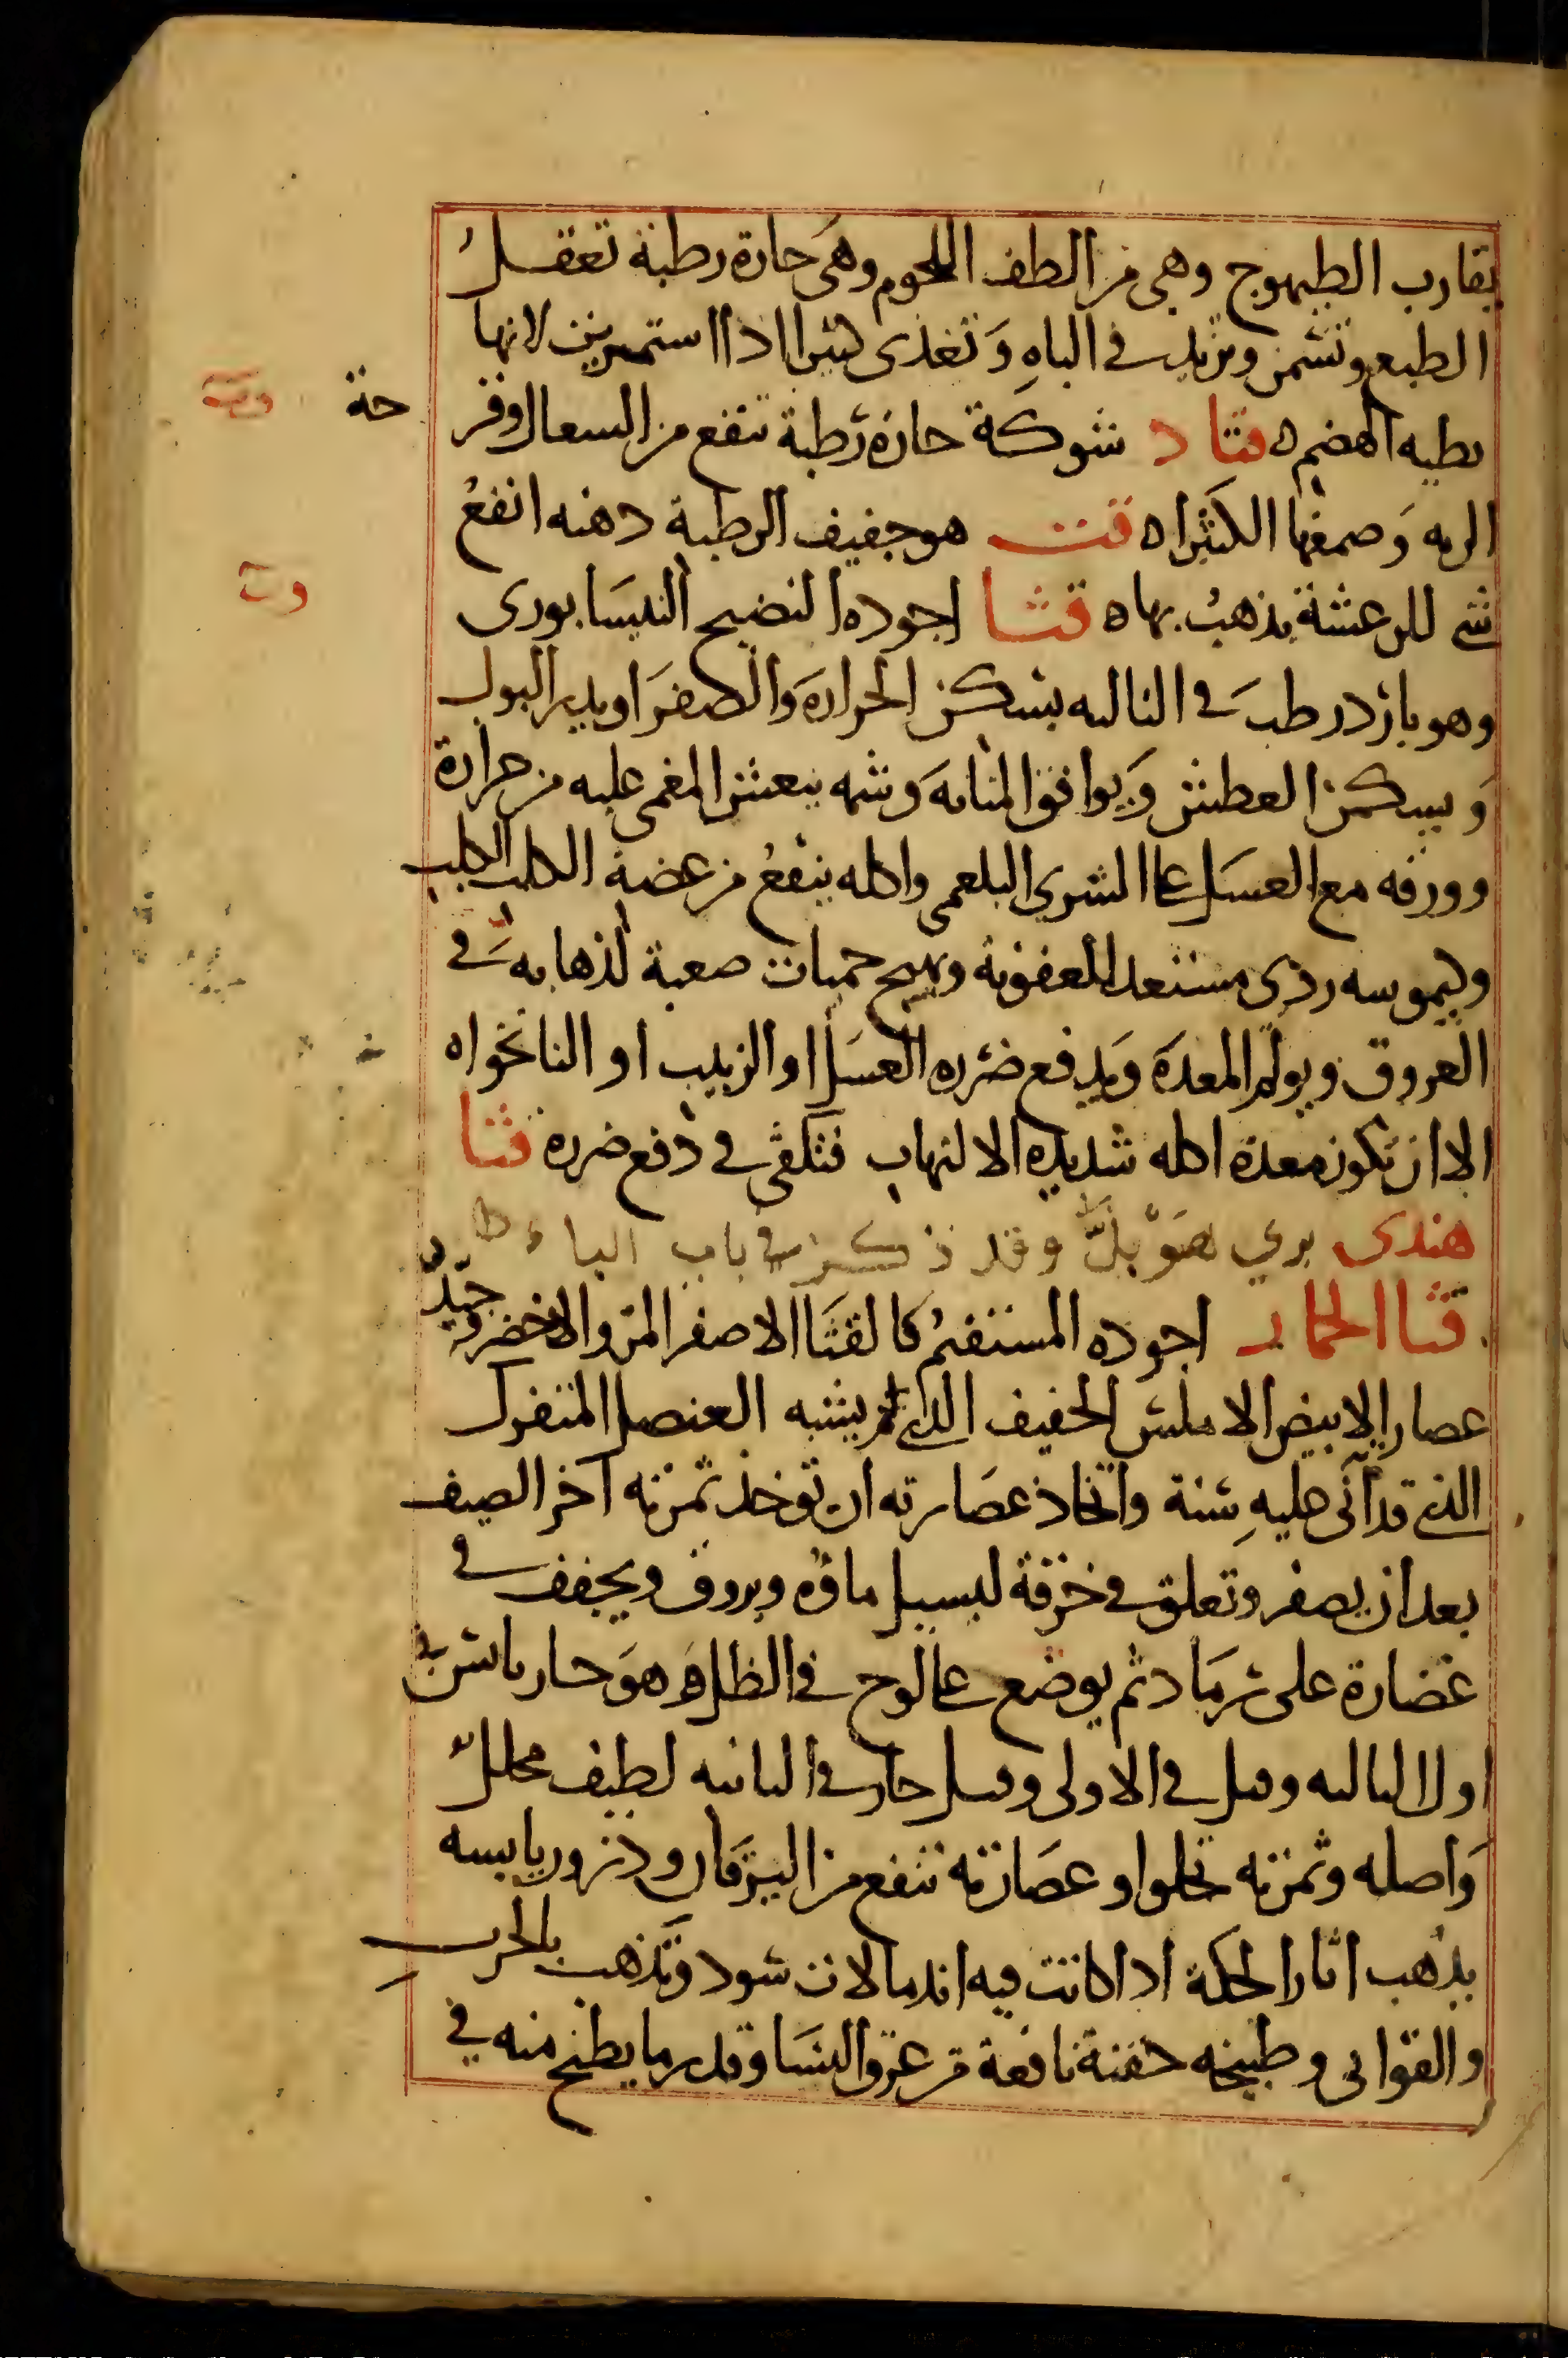 يقارب الطيهوج وهي من الطف اللحوم وهي حارة رطبة تعقل
الطبع وتسمن وتزيد في الباه وتغذى كثيرا اذا استمريت لانها
بطيه الهضم ه قتاد شوكة حارة رطبة تنفع من السعال وقر حة
الريه وصمغها الكثيرا ه قت هو جفيف الرطبة دهنه انفع
شي للرعشة يذهب بها ه قثا اجوده النضيج النيسابوري
وهو بارد رطب في الثالثه يسكن الحرارة والصفرا ويدر البول
ويسكن العطش ويوافق المثانه وشمه ينعش المغمى عليه من حرارة
وورقه مع العسل على الشرى البلغمى واكله ينفع من عضة الكلب الكلب
وكيموسه ردى مستعد للعفونة ويهيج حميات صعبة لذهابه في
العروق ويولم المعدة ويدفع ضرره العسل او الزبيب او النانخواه
الا ان تكون معدة اكله شديده الالتهاب فتكفى في دفع ضرره قثا
هندى بري هو بل وقد ذكر في باب الباء
قثا الحمار اجوده المستقيم كالقثا الاصفر المر والاخضر وجيد
عصار الابيض الاملس الخفيف الذي يشبه العنصل المتفرك
الذي قد اتى عليه سنة واتخاذ عصارته ان توخذ ثمرته آخر الصيف
بعد ان يصفر وتعلق في خرقة ليسيل ماؤه ويروق ويجفف في
غضارة على رماد ثم يوضع على لوح في الظل وهو حار يابس في
اول الثالثه وقيل في الاولى وقيل حار في الثانيه لطيف محلل
واصله وثمرته تجلوا وعصارته تنفع من اليرقان وذرور يابسه
يذهب اثار الحكة اذا كانت فيه اندمالات سود وتذهب بالجرب
والقوابى وطبيخه حقنة نافعة من عرق النسا وقدر ما يطبخ منه في